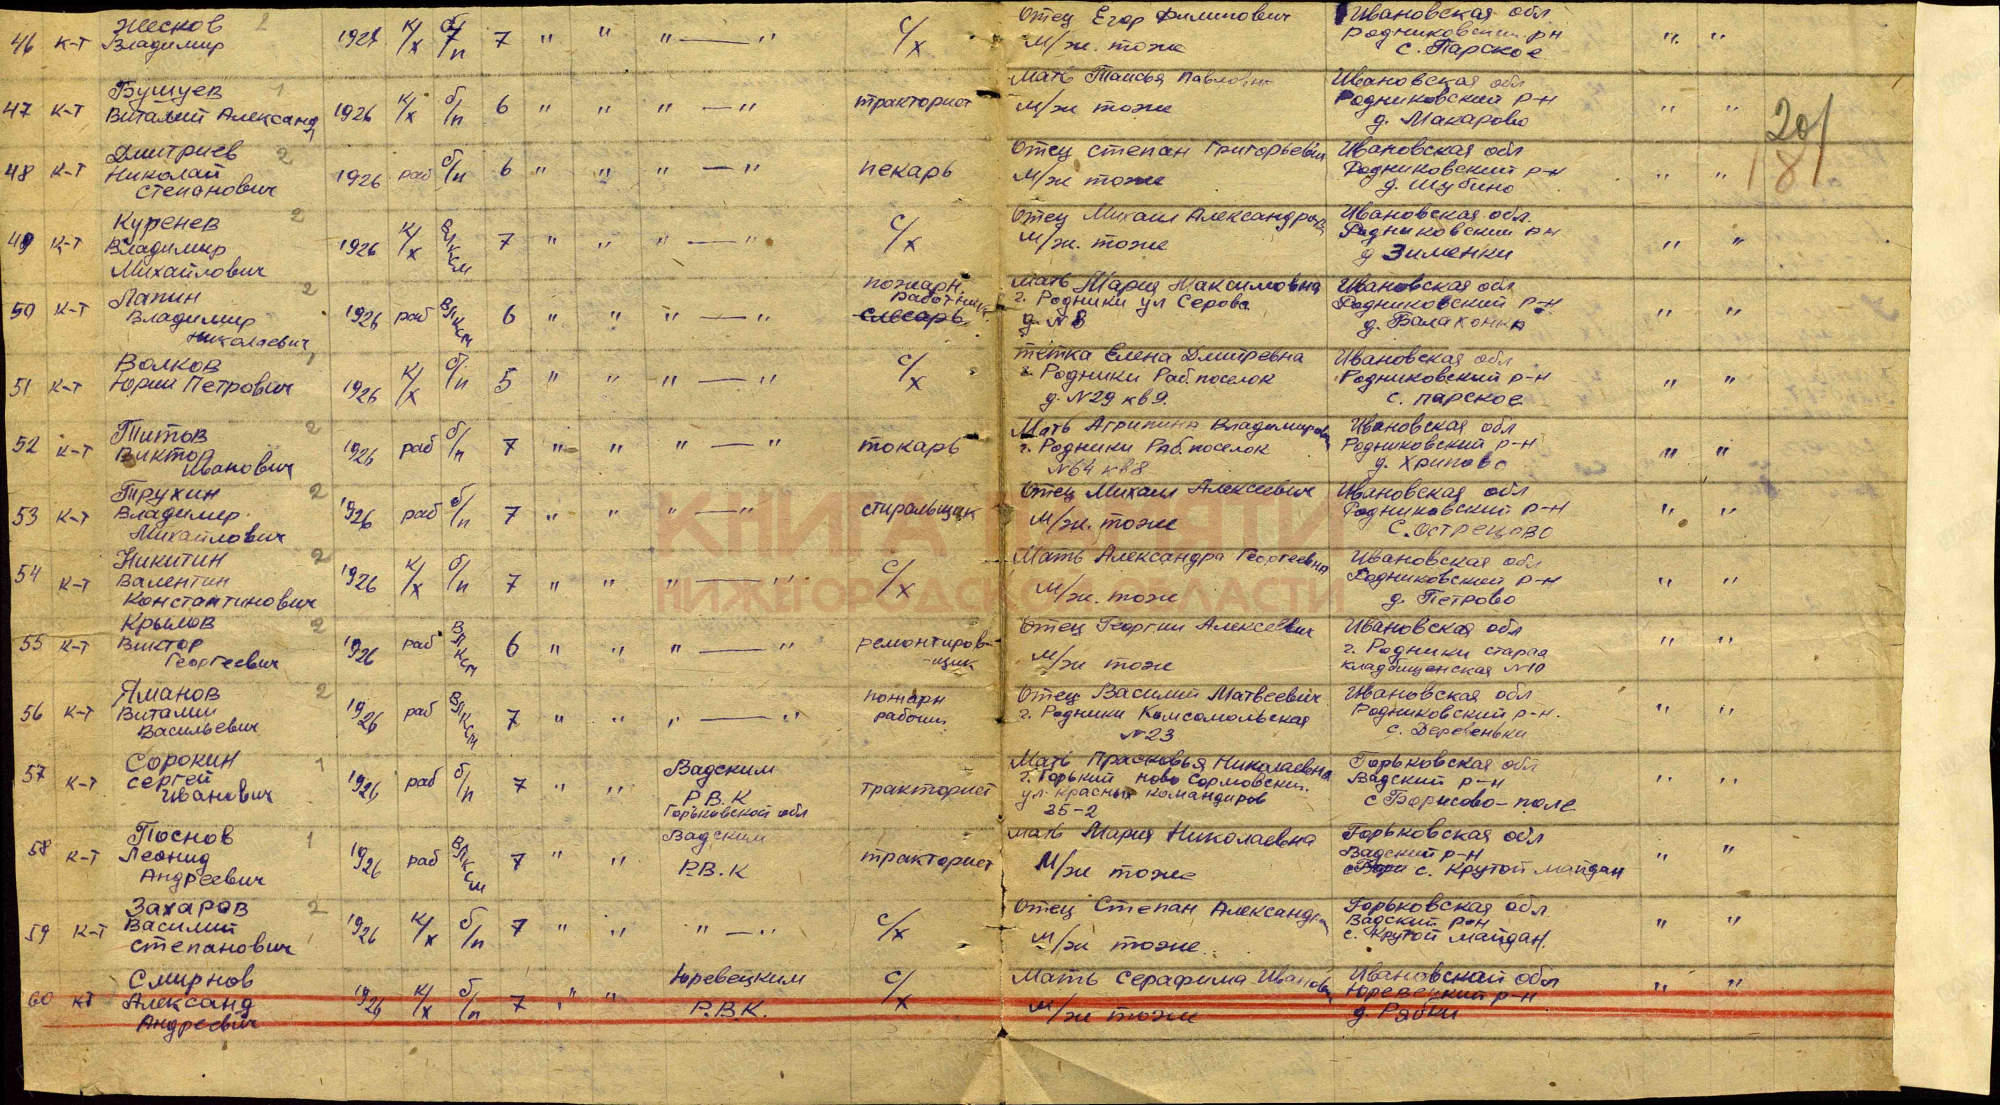 46 к-т Жесков Владимир 1927 к/х б/п 7 " " " — " с/х Отец Егор Филипович м/ж. тоже Ивановская обл Родниковский рн с. Парское " "
47 к-т Бушуев Виталий Александ 1926 к/х б/п 6 " " " — " тракторист Мать Таисья Павловна м/ж тоже Ивановская обл Родниковский р-н д. Макарово " "
201
181
48 к-т Дмитриев Николай Степанович 1926 раб б/п 6 " " " — " пекарь Отец Степан Григорьевич м/ж тоже Ивановская обл Родниковский р-н д. Шубино " "
49 к-т Куренев Владимир Михайлович 1926 к/х ВЛКСМ 7 " " " — " с/х Отец Михаил Александров м/ж. тоже Ивановская обл. Родниковский рн д Зименки " "
50 к-т Лапин Владимир Николаевич 1926 раб ВЛКСМ 6 " " " — " пожарн. работник слесарь Мать Мария Максимовна г. Родники ул Серова д. N 8 Ивановская обл Родниковский р-н д. Балахонка " "
51 к-т Волков Юрий Петрович 1926 к/х б/п 5 " " " — " с/х тётка Елена Дмитревна г. Родники Раб. поселок д. N 29 кв 9. Ивановская обл Родниковский р-н с. Парское " "
52 к-т Титов Виктор Иванович 1926 раб б/п 7 " " " — " токарь Мать Агрипина Владимиров г. Родники Раб. поселок N 64 кв 8 Ивановская обл Родниковский р-н д. Хрипово " "
53 к-т Трухин Владимир Михайлович 1926 раб б/п 7 " " " — " стиральщик Отец Михаил Алексеевич м/ж. тоже Ивановская обл Родниковский р-н с. Острецово " "
КНИГА ПАМЯТИ
54 к-т Никитин Валентин Константинович 1926 к/х б/п 7 " " " — " с/х Мать Александра Георгеевна м/ж. тоже Ивановская обл Родниковский р-н д. Петрово " "
НИЖЕГОРОДСКОЙ ОБЛАСТИ
55 к-т Крылов Виктор Георгеевич 1926 раб ВЛКСМ 6 " " " — " ремонтиров-щик Отец Георгий Алексеевич м/ж тоже Ивановская обл г. Родники старая кладбищенская N 10 " "
56 к-т Яманов Виталий Васильевич 1926 раб ВЛКСМ 7 " " " — " пожарн рабочий Отец Василий Матвеевич г. Родники Комсомольская N 23 Ивановская обл Родниковский р-н. с. Деревеньки " "
57 к-т Сорокин Сергей Иванович 1926 раб б/п 7 " " Вадским Р.В.К Горьковской обл тракторист Мать Прасковья Николаевна г. Горький ново Сормовский. ул. Красных командиров 35-2 Горьковская обл Вадский р-н с Борисово-поле " "
58 к-т Поснов Леонид Андреевич 1926 раб ВЛКСМ 7 " " Вадским Р.В.К тракторист Мать Мария Николаевна м/ж тоже Горьковская обл Вадский р-н с. Крутой майдан " "
59 к-т Захаров Василий Степанович 1926 к/х б/п 7 " " " — " с/х Отец Степан Александр м/ж тоже. Горьковская обл. Вадский р-н с. Крутой майдан. " "
60 кт Смирнов Александ Андреевич 1926 к/х б/п 7 " " Юревецким Р.В.К. с/х Мать Серафима Иванов м/ж тоже Ивановский обл Юревецкий р-н д Рябки " "